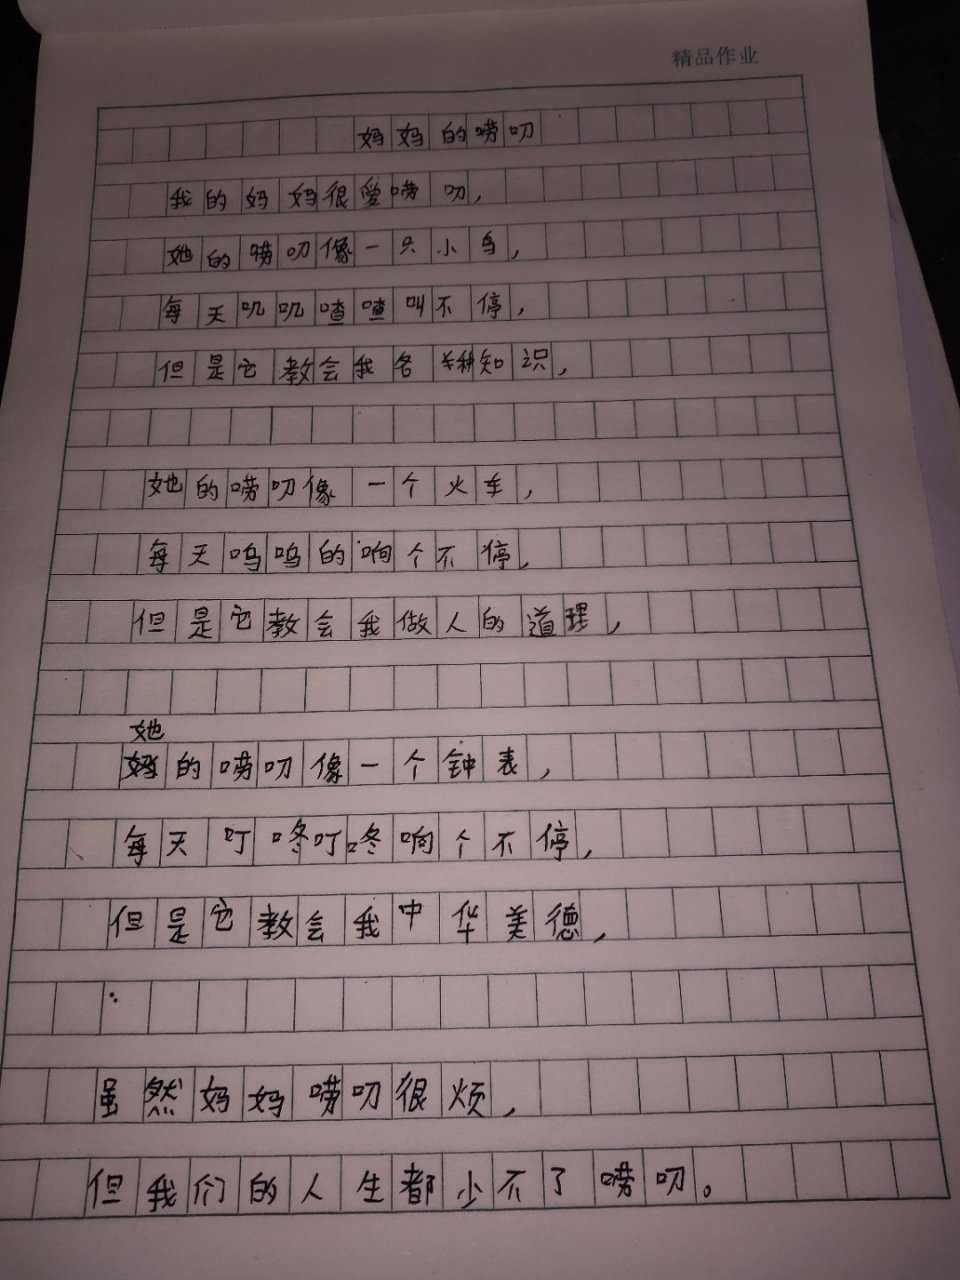 精品作业
妈妈的唠叨
我的妈妈很爱唠叨，
她的唠叨像一只小鸟，
每天叽叽喳喳叫不停，
但是它教会我各种知识，
她的唠叨像一个火车，
每天呜呜的响个不停，
但是它教会我做人的道理，
她
的唠叨像一个钟表，
每天叮咚叮咚响个不停，
但是它教会我中华美德，
虽然妈妈唠叨很烦，
但我们的人生都少不了唠叨。